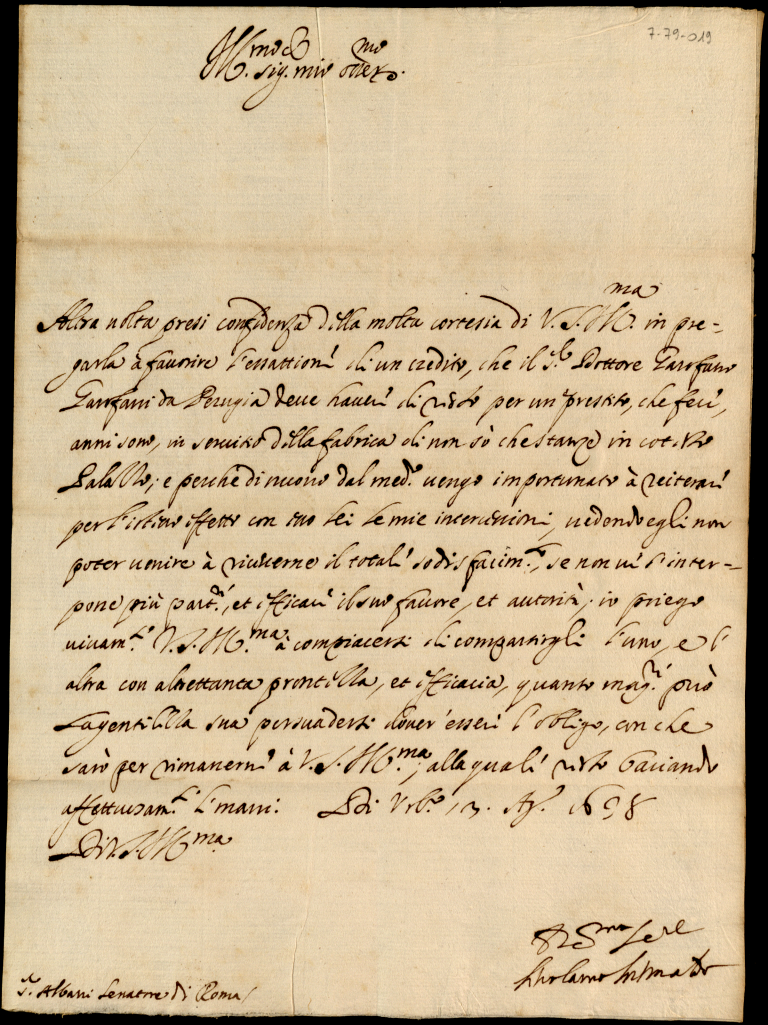 7-79-019
Ill.mo Sig. mio oss.mo
Altra volta presi confidenza della molta cortesia di V. S. Ill.ma in pre-
garla à favorire l'essattione di un credito, che il S.r Dottore Garofano
Garofani da Perugia deve havere di resto per un prestito, che fece,
anni sono, in servitio della fabrica di non sò che stanze in cotesto
Palazzo; e perche di nuovo dal med.o vengo importunato à reiterare
per l'istesso effetto con suo lei le mie intercessioni, vedendo egli non
poter venire à riceverne il totale sodisfacim.to, se non vi s'inter-
pone più part.re, et efficace il suo favore, et autorità; io priego
vivam.te V. S. Ill.ma à compiacersi di compartirgli l'uno, e l'
altra con altrettanta prontezza, et efficacia, quanto mag.re può
la gentilezza sua persuadersi dover'essere l'obligo, con che
sarò per rimanerne à V. S. Ill.ma, alla quale resto baciando
affettuosam.te le mani. Di Urb.o 13. Ag.o 1638
Di V. S. Ill.ma
S.r Albani Senatore di Roma